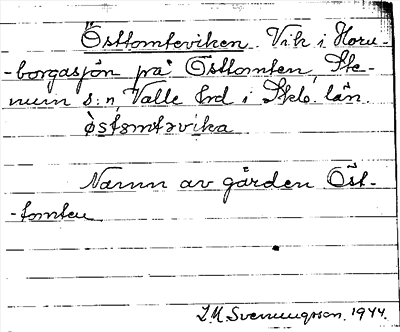 Östtomteviken. Vik i Horn-
-borgasjön på Östtomten, Ste-
num s:n, Valle hrd i Skb. län.
òstømtəvika
Namn av gården Öst-
-tomten
I. M. Svenungsson. 1944.